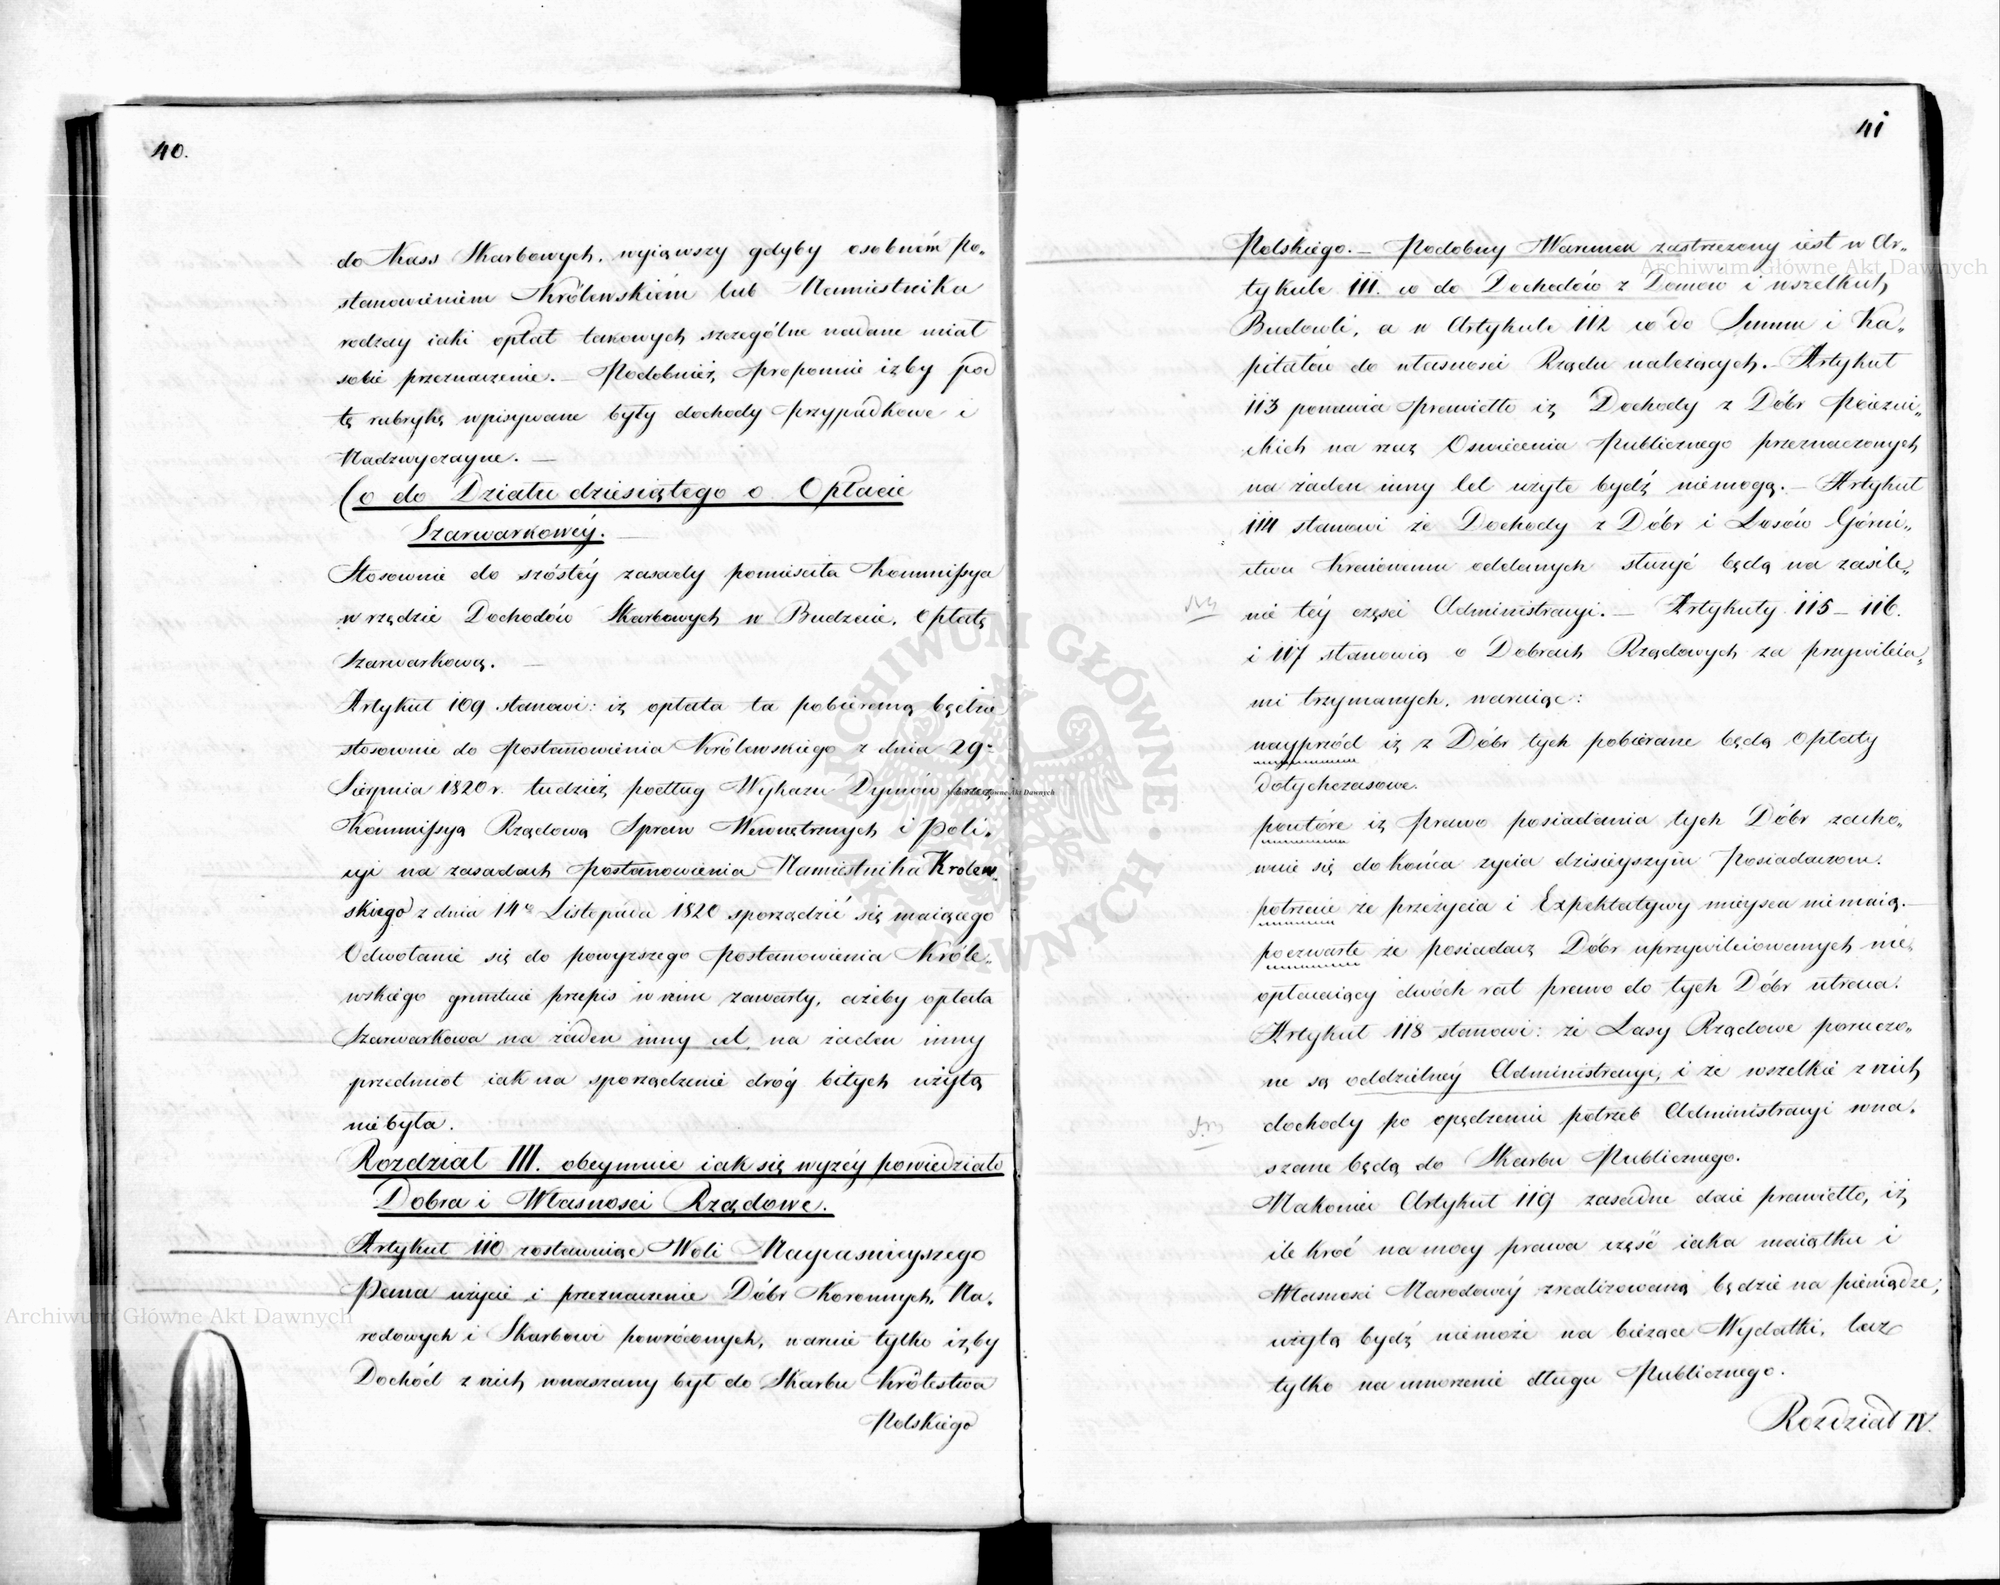 40.
do Kass Skarbowych, wyiąwszy gdyby osobném Po„
stanowieniem Królewskiém lub Namiestnika
rodzay iaki opłat takowych szczególne nadane miał
sobie przeznaczenie. — Podobnież proponuie iżby pod
tę rubrykę wpisywane były dochody przypadkowe i
Nadzwyczayne. —
Co do Działu dziesiątego o Opłacie
Szarwarkowéy. —
Stosownie do szóstéy zasady pomieściła Kommissya
w rzędzie Dochodów Skarbowych w Budżecie, Opłatę
Szarwarkową. —
Artykuł 109 stanowi: iż opłata ta pobieraną będzie
stosownie do Postanowienia Królewskiego z dnia 29º
Sierpnia 1820 r. tudzież podług Wykazu Dymów przez
Kommissyą Rządową Spraw Wewnętrznych i Poli„
cyi na zasadach Postanowienia Namiestnika Królew„
skiego z dnia 14º Listopada 1820 sporządzić się maiącego
Odwołanie się do powyższego Postanowienia Króle„
wskiego gruntuie przepis w nim zawarty, ażeby opłata
Szarwarkowa na żaden inny cel, na żaden inny
przedmiot iak na sporządzenie dróg bitych użytą
niebyła.
Rozdział III. obeymuie iak się wyżéy powiedziało
Dobra i Własności Rządowe.
Artykuł 110 zostawuiąc Woli Nayiaśnieyszego
Pana użycie i przeznaczenie Dóbr Koronnych, Na„
rodowych i Skarbowi powróconych, waruie tylko iżby
Dochód z nich wnaszany był do Skarbu Królestwa
Polskiego
41
Polskiego. — Podobny Warunek zastrzeżony iest w Ar„
tykule 111. co do Dochodów z Domów i wszelkich
Budowli, a w Artykule 112 co do Summ i Ka„
pitałów do własności Rządu należących. — Artykuł
113 ponawia prawidło iż Dochody z Dóbr Poiezui„
ckich na rzecz Oświecenia Publicznego przeznaczonych
na żaden inny cel użyte bydź niemogą. — Artykuł
114 stanowi że Dochody z Dóbr i Lasów Górni„
ctwu Kraiowemu oddanych służyć będą na zasile„
nie téy części Administracyi. — Artykuły 115 — 116.
i 117 stanowią o Dobrach Rządowych za przywileia„
mi trzymanych, waruiąc:
nayprzód iż z Dóbr tych pobierane będą Opłaty
dotychczasowe.
powtóre iż Prawo posiadania tych Dóbr zacho„
wuie się do końca życia dzisieyszym Posiadaczom.
potrzecie że przeżycia i Expektatywy mieysca nie maią. —
poczwarte że posiadacz Dóbr uprzywileiowanych nie
opłacaiący dwóch rat prawo do tych Dóbr utraca.
Artykuł 118 stanowi: że Lasy Rządowe poruczo„
ne są oddzielnéy Administracyi, i że wszelkie z nich
dochody po opędzeniu potrzeb Administracyi wna„
szane będą do Skarbu Publicznego.
Nakoniec Artykuł 119 zasadne daie prawidło, iż
ile kroć na mocy prawa część iaka maiątku i
Własności Narodowéy zrealizowaną będzie na pieniądze,
użytą bydź niemoże na bieżące Wydatki, lecz
tylko na umorzenie długu Publicznego.
Rozdział IV.
Archiwum Główne Akt Dawnych
Archiwum Główne Akt Dawnych
ARCHIWUM GŁÓWNE AKT DAWNYCH